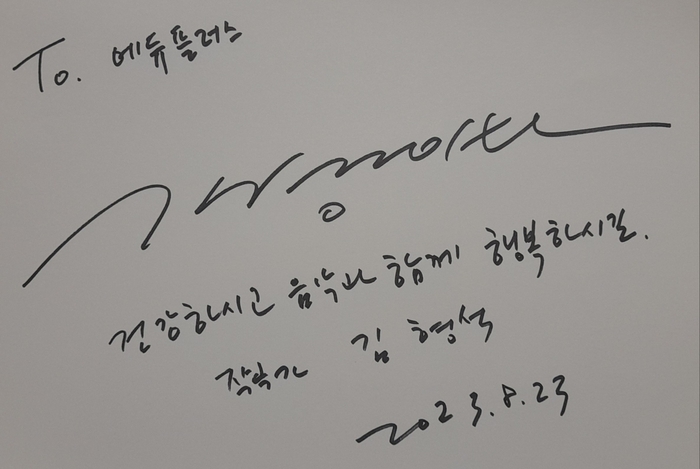 To. 에듀플러스
건강하시고 음악과 함께 행복하시길.
작곡가 김형석
2023.8.23